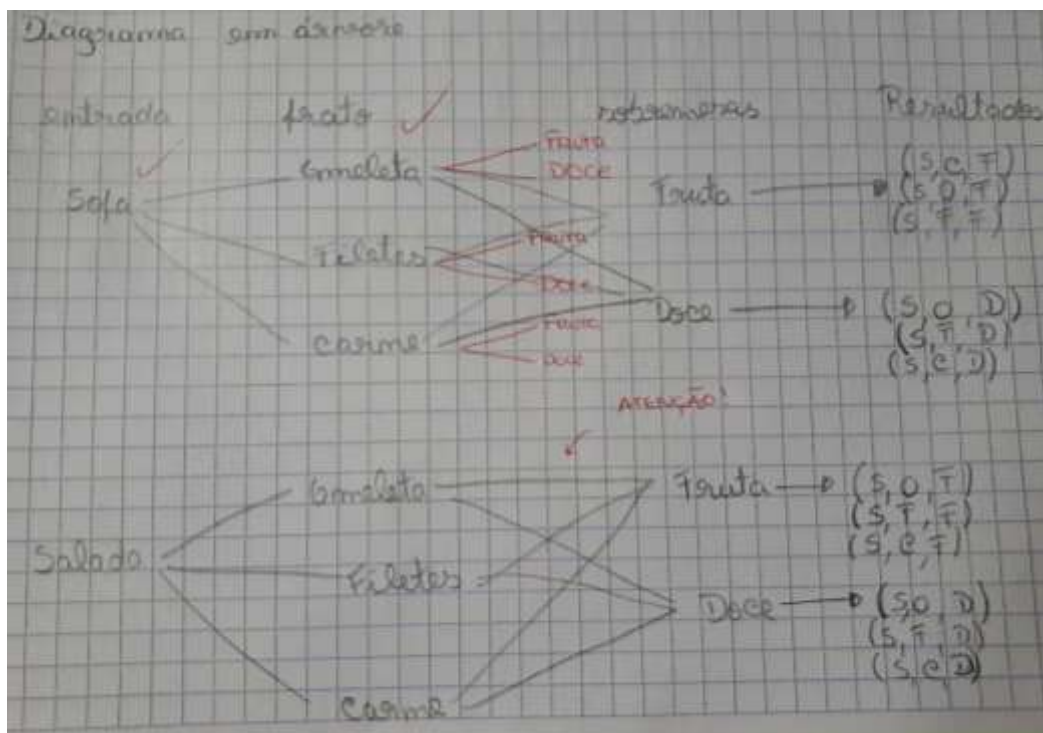 Diagrama em árvore
entrada prato sobremesas Resultados
Sopa
Omeleta
FRUTA
DOCE
Filetes
FRUTA
DOCE
Carne
FRUTA
DOCE
Fruta
(S, C, F)
(S, O, F)
(S, F, F)
Doce
(S, O, D)
(S, F, D)
(S, C, D)
ATENÇÃO!
Salada
Omeleta
Filetes
Carne
Fruta
(S, O, F)
(S, F, F)
(S, C, F)
Doce
(S, O, D)
(S, F, D)
(S, C, D)